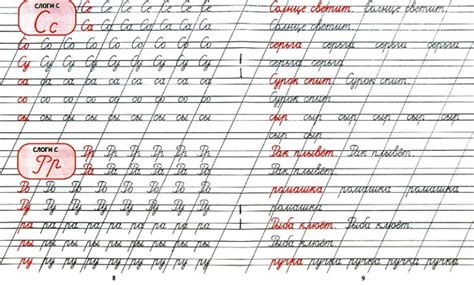 СЛОГИ С
Сс
Се Се Се Се Се Се
Са Са Са Са Са Са
Со Со Со Со Со Со Со Со
Су Су Су Су Су Су Су Су
са са са са са са са са
со со со со со со со со
сы сы сы сы сы сы сы сы
СЛОГИ С
Рр
Ра Ра Ра Ра Ра Ра
Ро Ро Ро Ро Ро Ро Ро Ро
Ру Ру Ру Ру Ру Ру Ру Ру
ра ра ра ра ра ра ра ра
ры ры ры ры ры ры ры ры
ру ру ру ру ру ру ру ру
8
Солнце светит. Солнце светит.
Солнце светит.
серьга серьги серьги серьги
серьга серьга
Сурок спит. Сурок спит.
Сурок спит.
сыр сыр сыр сыр сыр сыр
сыр сыр
Рак плывёт. Рак плывёт.
Рак плывёт.
ромашка ромашка ромашка
ромашка
Рыба клюёт. Рыба клюёт.
Рыба клюёт.
ручка ручка ручка ручка ручка
9